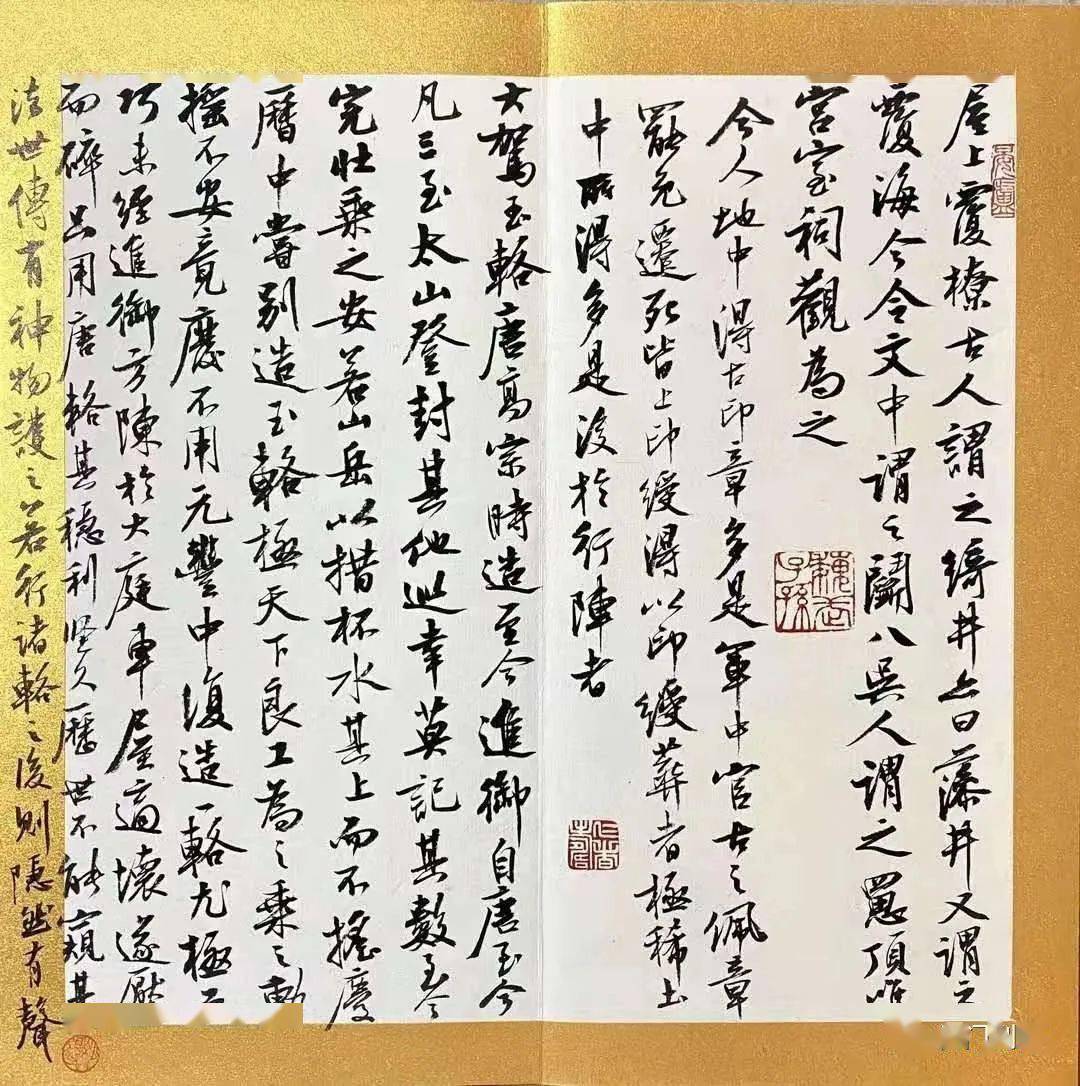 屋上覆橑古人謂之綺井亦曰藻井又謂之
覆海今令文中謂之鬪八吳人謂之罳頂唯
宮室祠觀為之
今人地中得古印章多是軍中官古之佩章
罷免遷死皆上印綬得以印綬葬者極稀土
中所得多是沒於行陣者
大駕玉輅唐高宗時造至今進御自唐至今
凡三至太山登封其他巡幸莫記其數至今
完壯乘之安若山岳以措杯水其上而不搖慶
曆中嘗別造玉輅極天下良工為之乘之動
搖不安竟廢不用元豐中復造一輅尤極工
巧未經進御方陳於大庭車屋適壞遂壓
而碎只用唐輅其穩利坚久曆世不能窺其
法世傳有神物護之若行諸輅之後則隱然有聲
魏武子孫